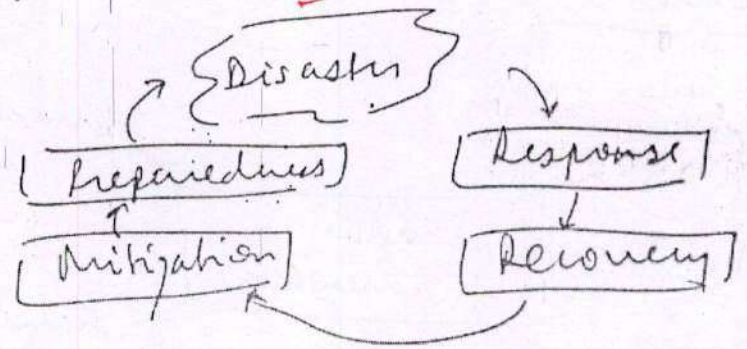 Disaster
Preparedness
Response
Mitigation
Recovery